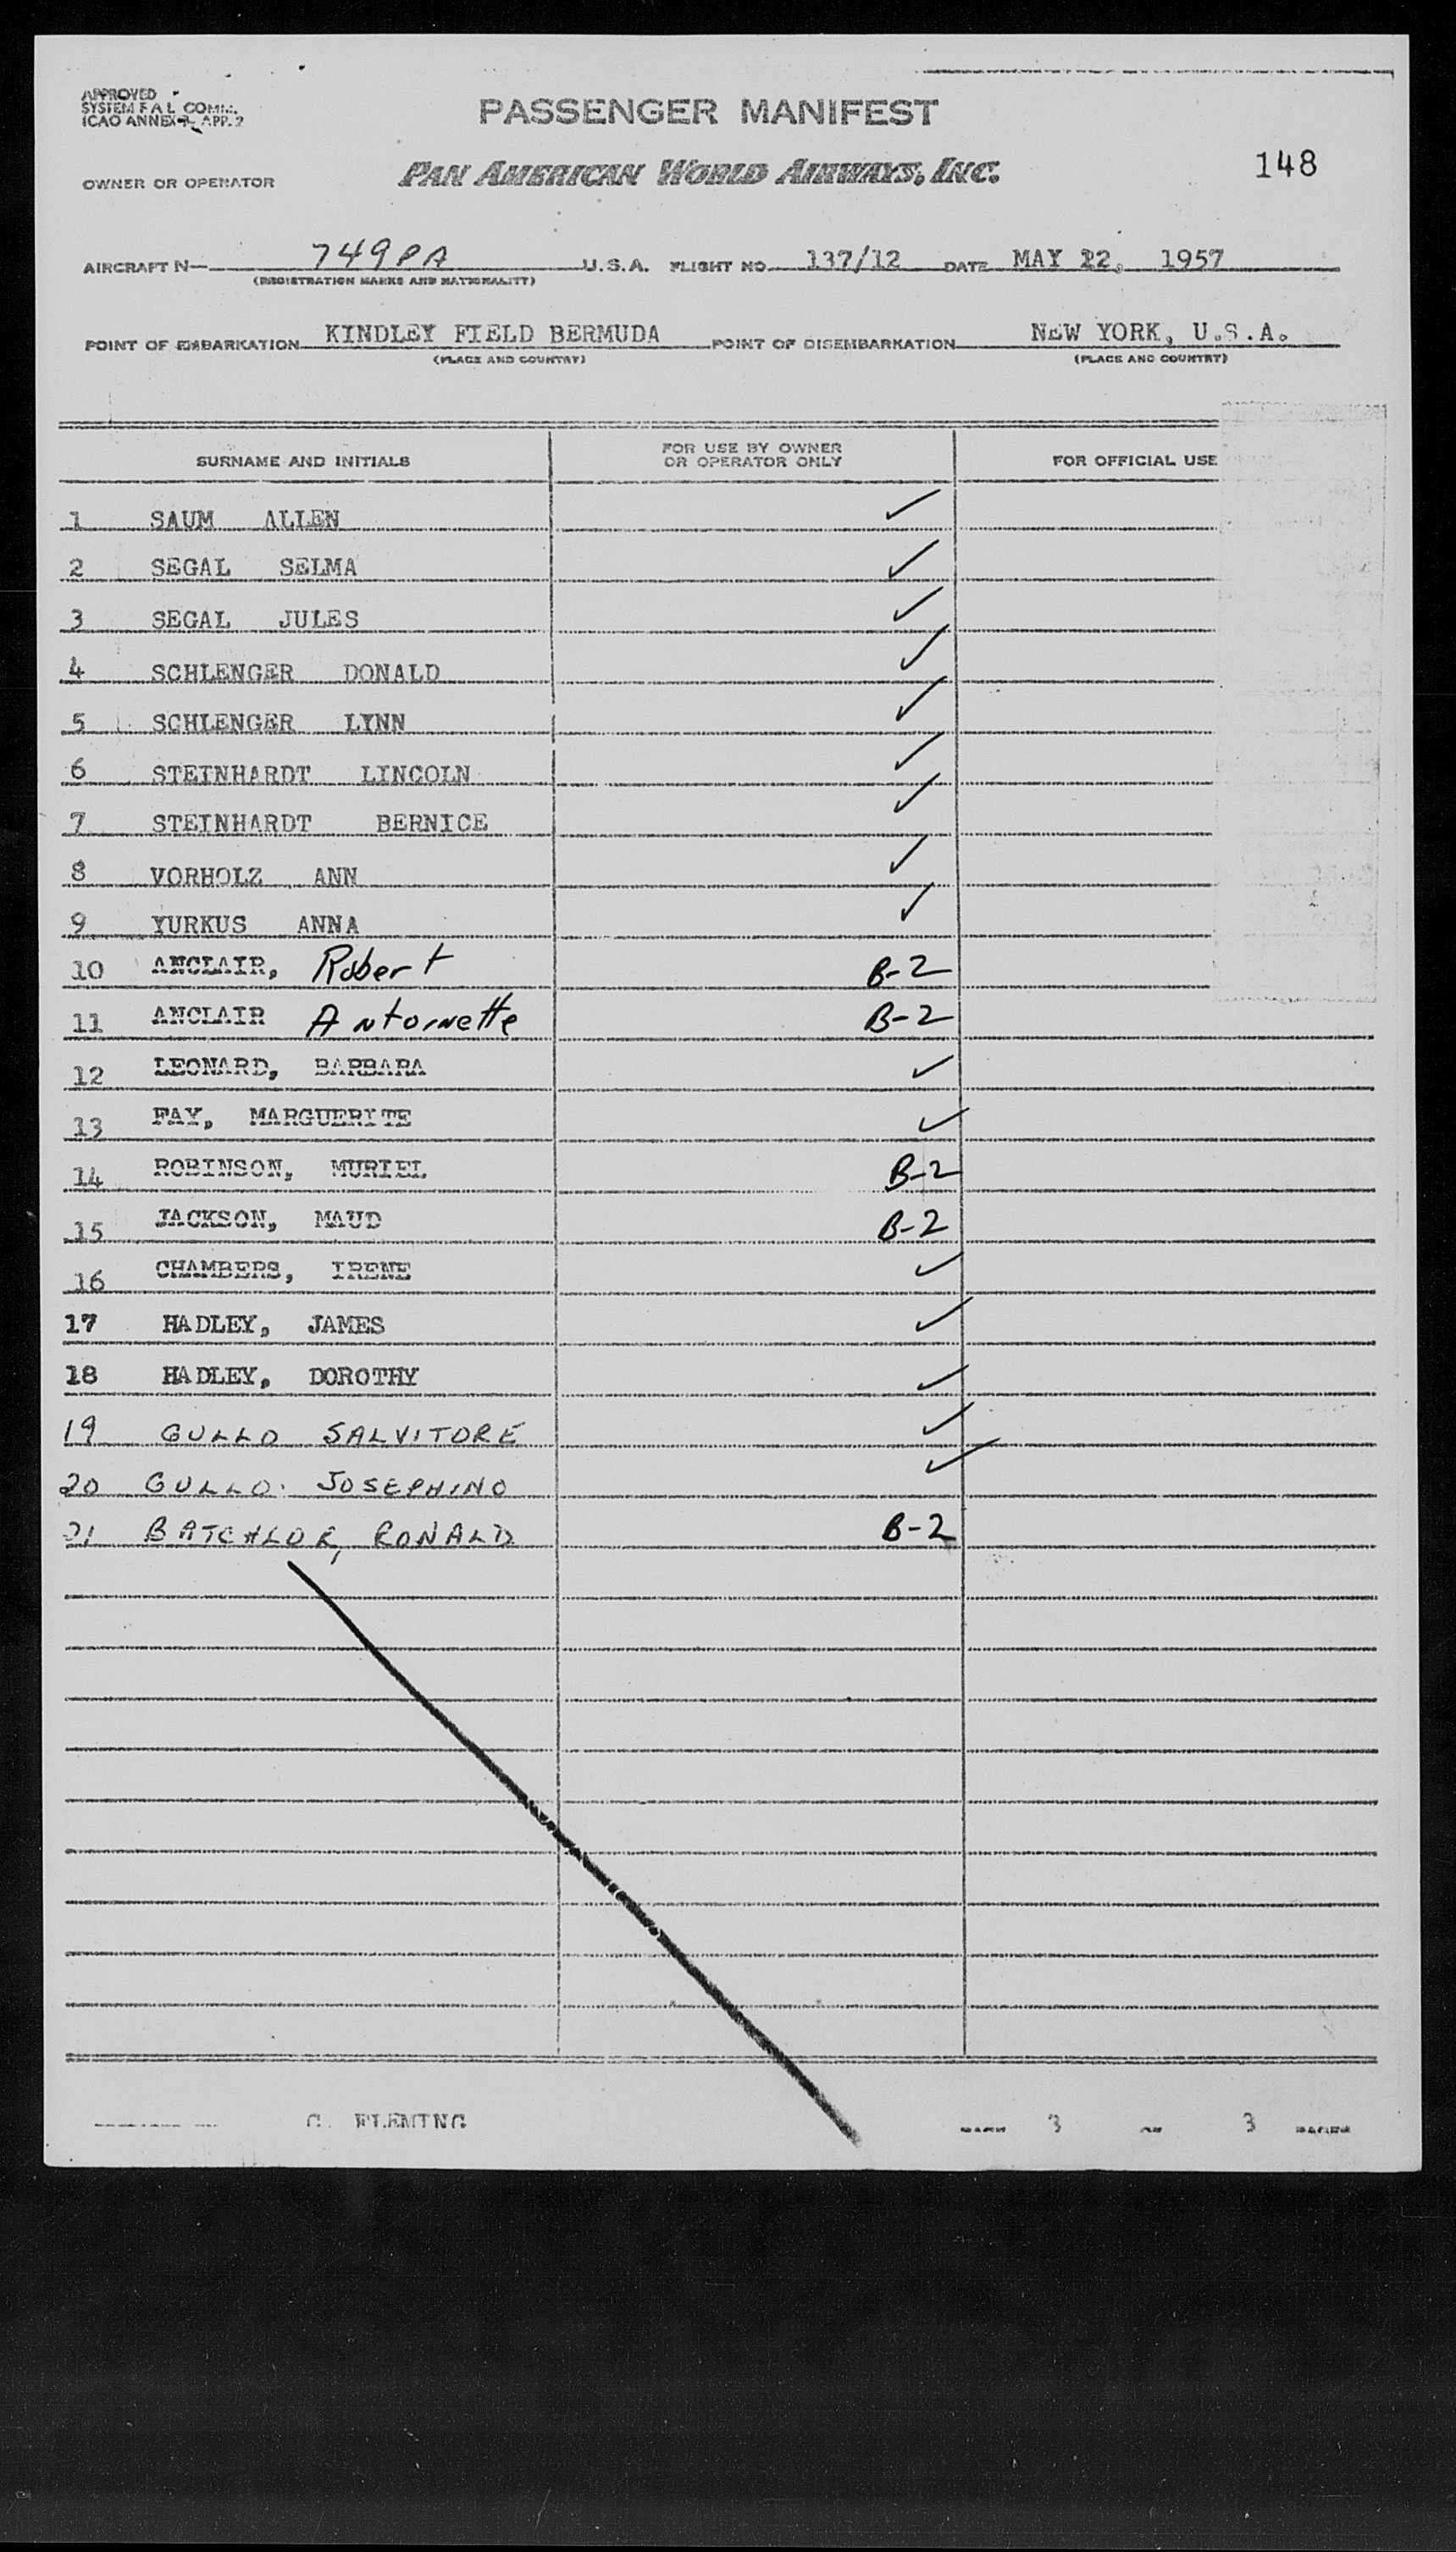 APPROVED
SYSTEM F.A.L. COMM.
ICAO ANNEX 9, APP. 2
PASSENGER MANIFEST
OWNER OR OPERATOR PAN AMERICAN WORLD AIRWAYS, INC. 148
AIRCRAFT N— 749PA U.S.A. FLIGHT NO. 137/12 DATE MAY 22, 1957
(REGISTRATION MARKS AND NATIONALITY)
POINT OF EMBARKATION KINDLEY FIELD BERMUDA POINT OF DISEMBARKATION NEW YORK, U.S.A.
(PLACE AND COUNTRY) (PLACE AND COUNTRY)
SURNAME AND INITIALS FOR USE BY OWNER OR OPERATOR ONLY FOR OFFICIAL USE
1 SAUM ALLEN ✓
2 SEGAL SELMA ✓
3 SEGAL JULES ✓
4 SCHLENGER DONALD ✓
5 SCHLENGER LYNN ✓
6 STEINHARDT LINCOLN ✓
7 STEINHARDT BERNICE ✓
8 VORHOLZ ANN ✓
9 YURKUS ANNA ✓
10 ANCLAIR, Robert B-2
11 ANCLAIR Antoinette B-2
12 LEONARD, BARBARA ✓
13 FAY, MARGUERITE ✓
14 ROBINSON, MURIEL B-2
15 JACKSON, MAUD B-2
16 CHAMBERS, IRENE ✓
17 HADLEY, JAMES ✓
18 HADLEY, DOROTHY ✓
19 GULLO SALVITORE ✓
20 GULLO. JOSEPHINO ✓
21 BATCHLOR, RONALD B-2
C. FLEMING PAGE 3 OF 3 PAGES